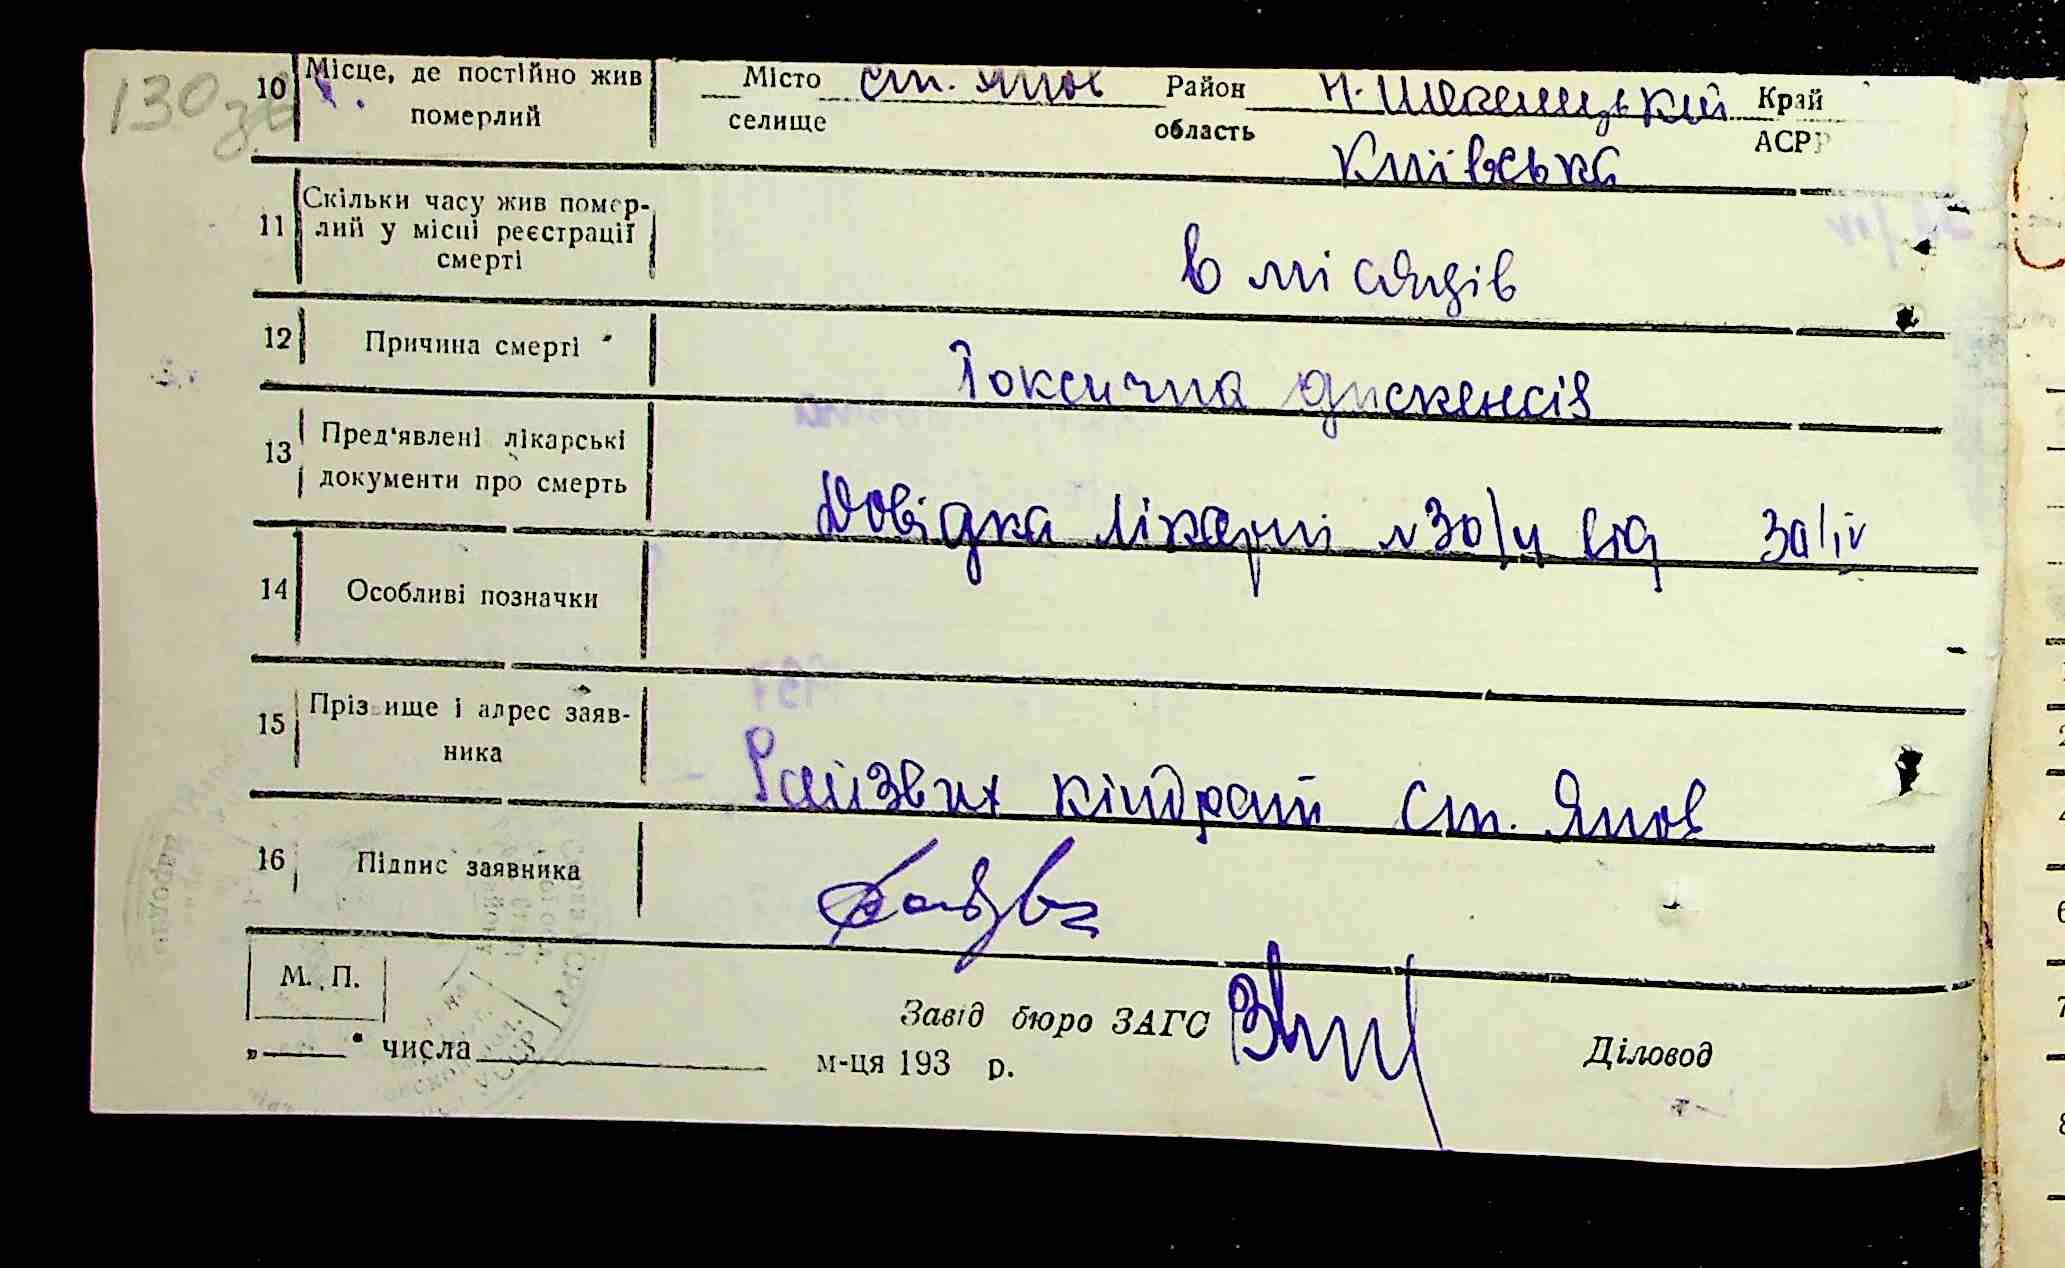 130 зв
10 Місце, де постійно жив померлий
Місто селище ст. Янов Район Н. Шепелицький Край
область Київська АСРР
11 Скільки часу жив помер-
лий у місці реєстрації
смерті
6 місяців
12 Причина смерті Токсична диспепсія
13 Пред'явлені лікарські
документи про смерть
Довідка лікарні від 30/IV
14 Особливі позначки
15 Прізвище і адрес заяв-
ника
Кіндрат ст. Янов
16 Підпис заявника
М. П.
Завід бюро ЗАГС Діловод
„ " числа м-ця 193 р.